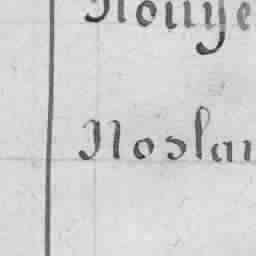 Nouye
Noslan